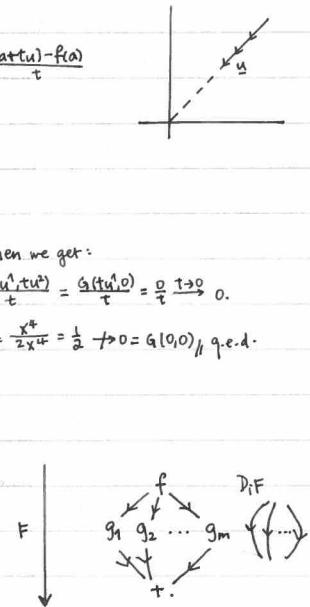 a+tu)-f(a)
t
u
hen we get:
u¹,tu²)/t = G(tu¹,0)/t = 0/t t→0 → 0.
= x⁴/2x⁴ = 1/2 ↛ 0 = G(0,0) // q.e.d.
f DiF
F g1 g2 ... gm ...
t.